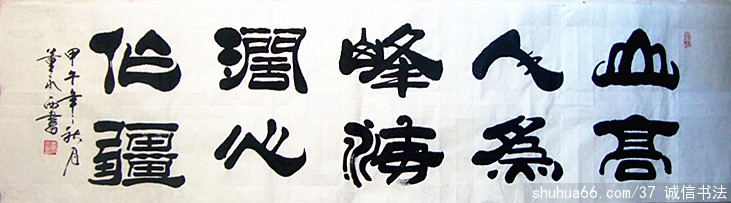 山高
人為
峰海
濶心
作疆
甲午年秋月
董永西書
shuhua66.com/37 诚信书法